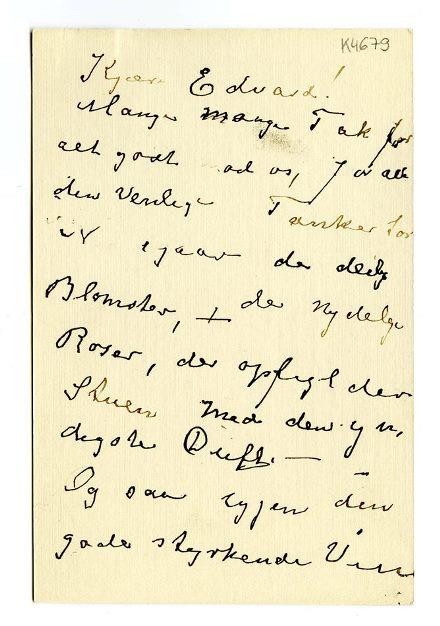 K4679
Kjære Edvard!
Mange mange Tak for
alt godt mod os, for all
den Venlige Tanker for
igaar de deilige
Blomster, + de nydelige
Roser, der opfyldte
Stuen med den yn,
digste Duft. —
Og saa igjen den
gode styrkende Vin